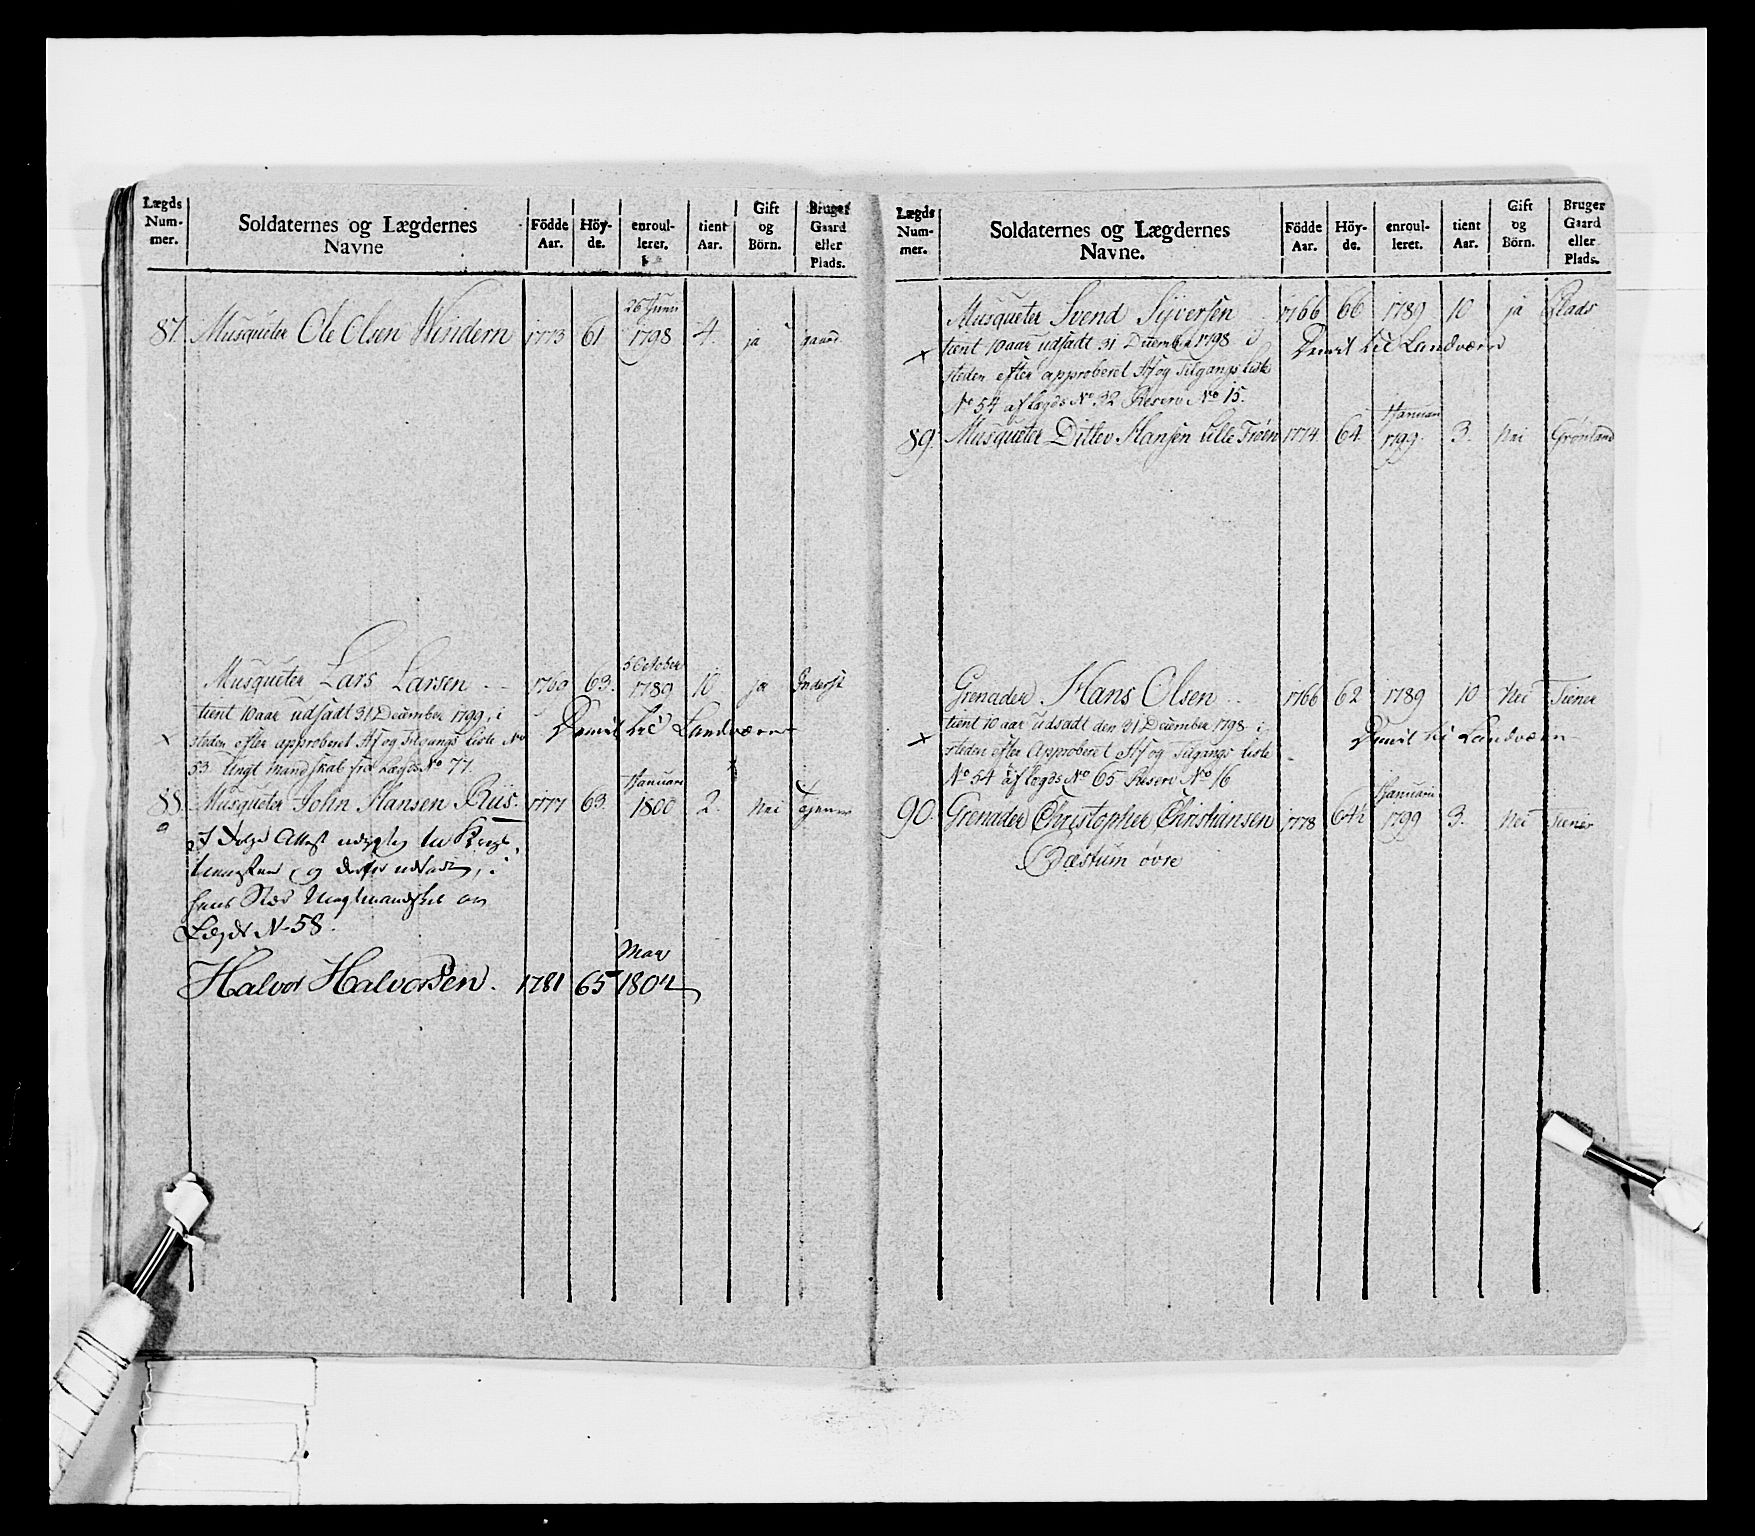 Lægds Num- mer.
Soldaternes og Lægdernes Navne
Födde Aar.
Höy- de.
enroul- leret.
tient Aar.
Gift og Börn.
Bruger Gaard eller Plads.
26 Juni
87. Musqueter Ole Olsen Windern 1773 61 1798 4. ja gaard
5 October
Musqueter Lars Larsen 1760 63. 1789 10 ja Inderst
tient 10 aar udsadt 31 December 1799, i
Demit til Landværn
steden efter approberet Af og Tilgangs Liste No
53. Ungt mandskab fra Lægds No 77.
Januarii
88. Musqueter John Hansen Riis. 1777 63. 1800 2. Nei
og derfor udsadt, i
hans Sted Ungtmandskab
Lægds N- 58.
May
Halvor Halvorsen. 1781 65 1802
Lægds Num- mer.
Soldaternes og Lægdernes Navne.
Födde Aar.
Höy- de.
enroul- leret.
tient Aar.
Gift og Börn.
Bruger Gaard eller Plads.
Musqueter Svend Syversen 1766 66 1789 10 ja Plads
tient 10 aar udsadt 31 December 1798 i
Demit til Landværn
steden efter approberet Af og Tilgangs Liste
No 54 af Lægds No 32 Reserv No 15.
Januari
89. Musqueter Ditlev Hansen Lille Frøen 1774 64 1799. 3. Nei Grønland
Grenader Hans Olsen 1766 62 1789 10 Nei Tiener
tient 10 aar udsadt den 31 December 1798 i
Demit til Landværn
steden efter Approberet Af og Tilgangs Liste
No 54 af Lægds No 65 Reserv No 16
Januarii
90. Grenader Christopher Christiansen 1778 64½ 1799 3. Nei Tiener
Bæstum øvre